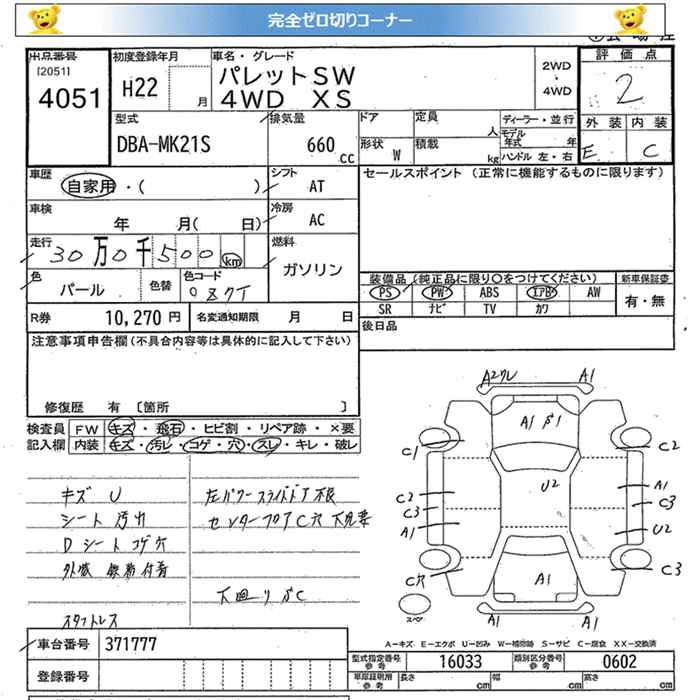 完全ゼロ切りコーナー
出品番号 [2051] 4051
初度登録年月 H22 月
車名・グレード パレットSW 4WD XS
2WD・4WD
評価点 2
外装 E 内装 C
型式 DBA-MK21S
排気量 660 cc
ドア 形状 W
定員 人 積載 kg
ディーラー・並行 モデル年式 年 ハンドル 左・右
車歴 自家用・( )
シフト AT
車検 年 月( 日)
冷房 AC
走行 30万0千500km
燃料 ガソリン
色 パール 色替 色コード
セールスポイント (正常に機能するものに限ります)
装備品(純正品に限り○をつけてください) 新車保証書
PS PW ABS エアB AW 有・無
SR ナビ TV カワ
後日品
R券 10,270 円 名変通知期限 月 日
注意事項申告欄(不具合内容等は具体的に記入して下さい)
修復歴 有 〔箇所 〕
検査員 FW キズ・飛石・ヒビ割・リペア跡・×要
記入欄 内装 キズ・汚レ・コゲ・穴・スレ・キレ・破レ
キズ U
シート 汚レ
Dシート コゲ穴
左パワースライドドア不良
センターフロアC穴
下回り
スタットレス
A1 U2 A1
C1 C2
C2 A1
C3 C3
A1 U2
C穴 C3
A1 A1 A1
スペ
A=キズ E=エクボ U=凹み W=補修跡 S=サビ C=腐食 XX=交換済
車台番号 371777
登録番号
型式指定番号 参考 16033 類別区分番号 参考 0602
車庫証明用 参考 長さ cm 幅 cm 高さ cm